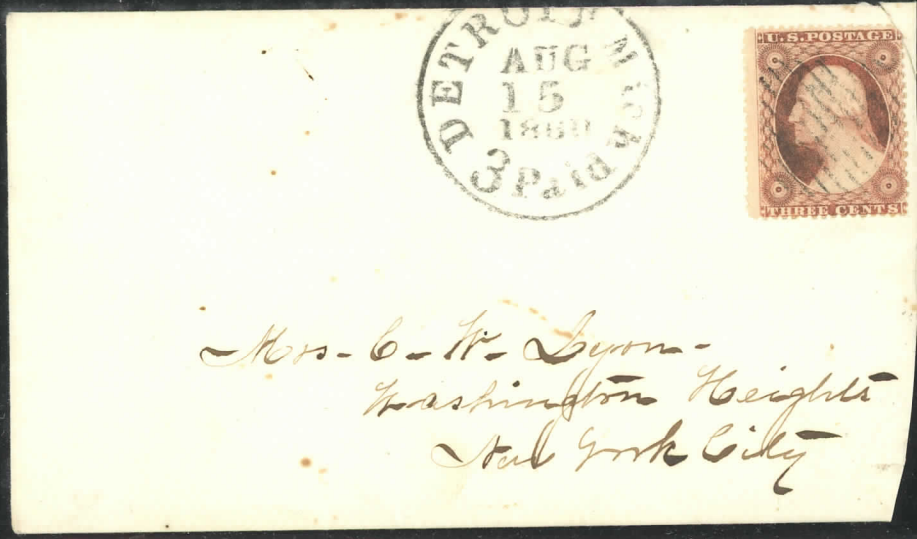 DETROIT Mich
AUG
15
1860
3 Paid
U.S. POSTAGE
THREE CENTS
Mrs - C - W - Lyon -
Washington Heights
New York City